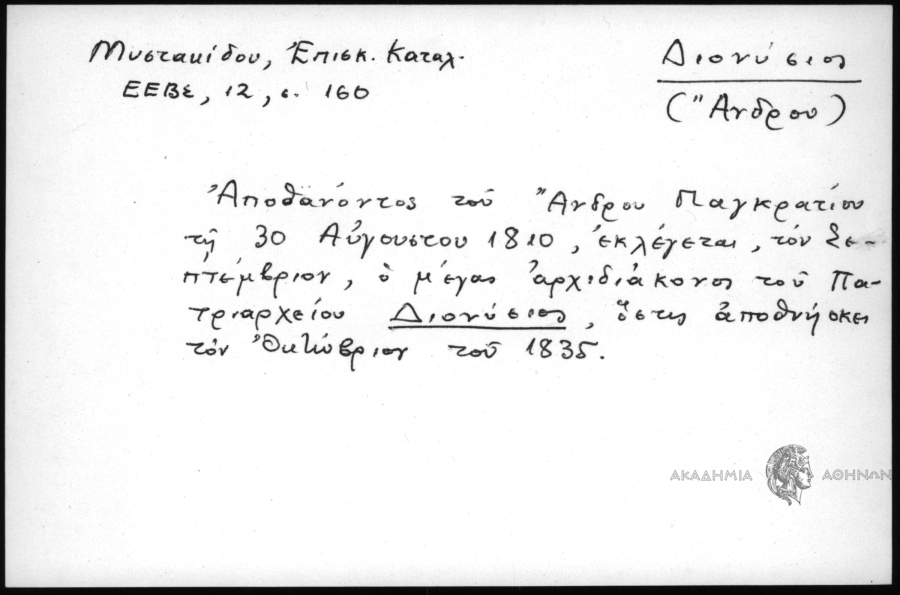 Μυστακίδου, Ἐπισκ. Καταλ.
ΕΕΒΣ, 12, σ. 160
Διονύσιος
(Ἄνδρου)
Ἀποθανόντος τοῦ Ἄνδρου Παγκρατίου
τῇ 30 Αὐγούστου 1810, ἐκλέγεται, τόν Σε-
πτέμβριον, ὁ μέγας ἀρχιδιάκονος τοῦ Πα-
τριαρχείου Διονύσιος, ὅστις ἀποθνήσκει
τόν Ὀκτώβριον τοῦ 1835.
ΑΚΑΔΗΜΙΑ ΑΘΗΝΩΝ